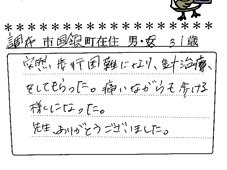 調布市国領町在住 男・女 31歳
突然、歩行困難になり、鍼治療
をしてもらった。痛いながらも歩ける
様になった。
先生ありがとうございました。